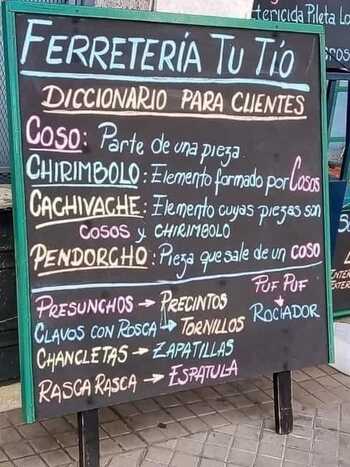 FERRETERÍA TU TÍO
DICCIONARIO PARA CLIENTES
COSO: Parte de una pieza.
CHIRIMBOLO: Elemento formado por Cosos
CACHIVACHE: Elemento cuyas piezas son
COSOS y CHIRIMBOLO
PENDORCHO: Pieza que sale de un COSO
PRESUNCHOS → PRECINTOS
CLAVOS CON ROSCA → TORNILLOS
CHANCLETAS → ZAPATILLAS
RASCA RASCA → ESPATULA
PUF PUF
↓
ROCIADOR
tericida Pileta